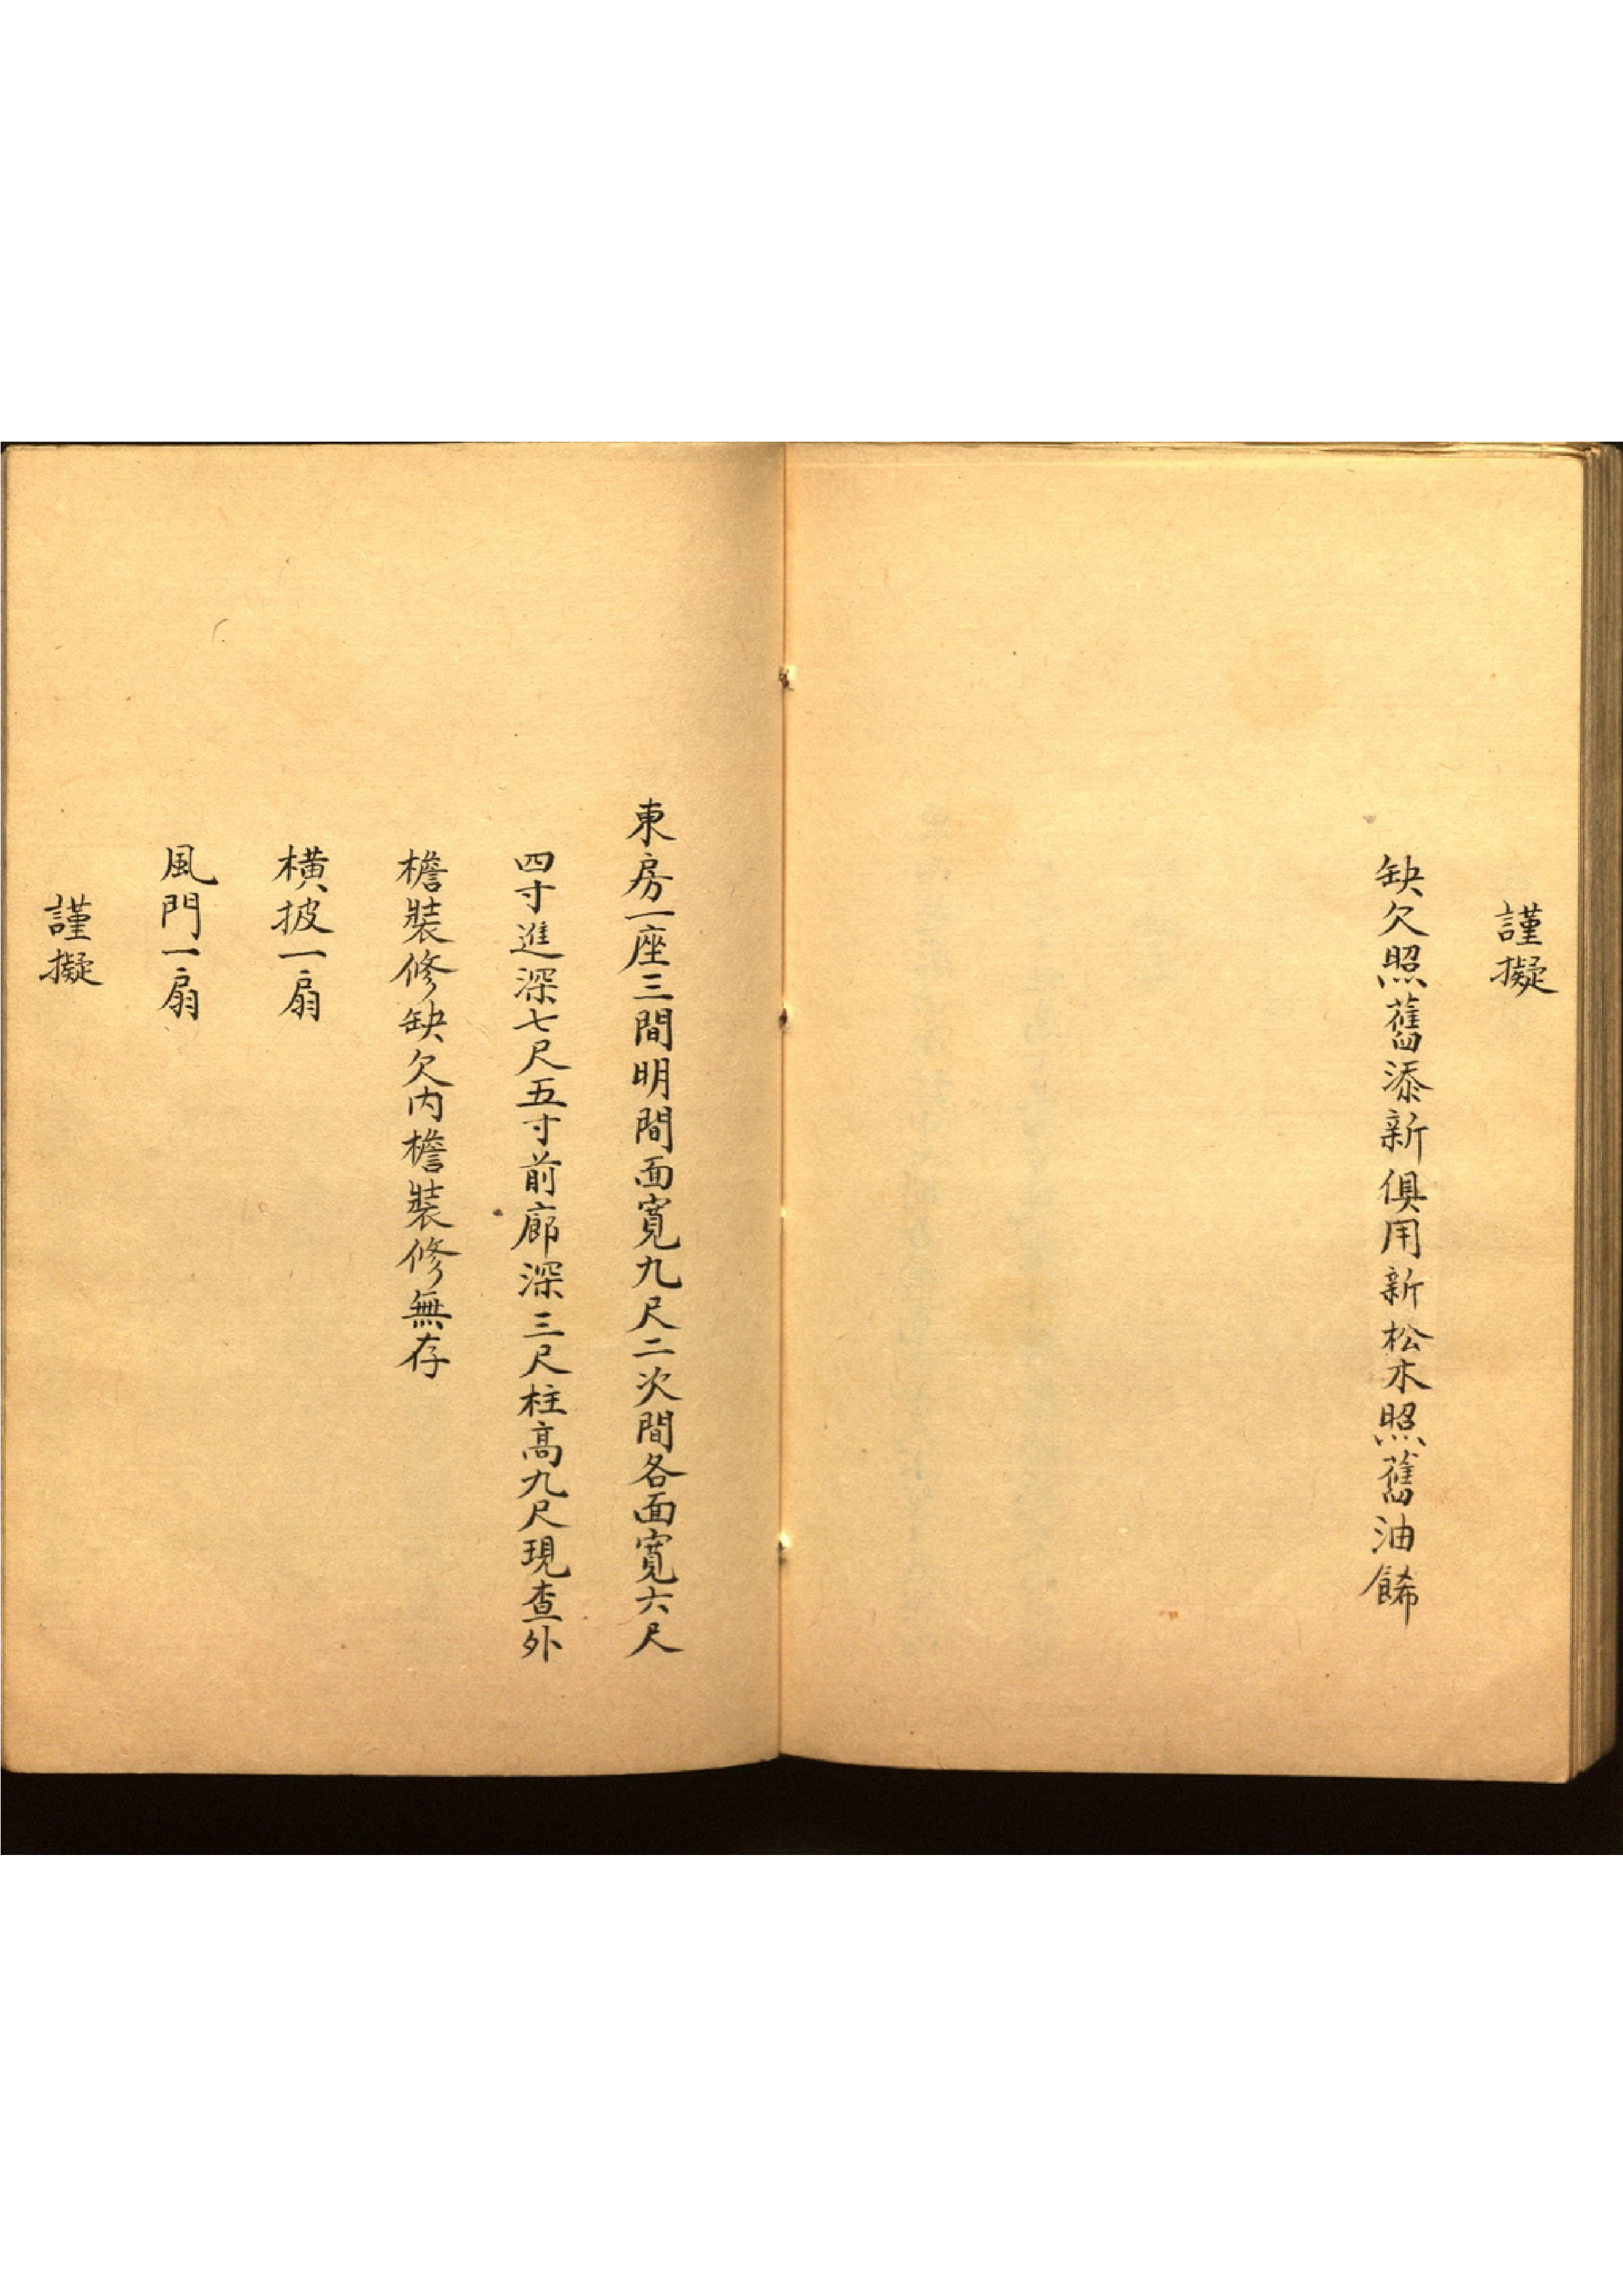 謹擬
缺欠照舊添新俱用新松木照舊油餙
東房一座三間明間面寬九尺二次間各面寬六尺
四寸進深七尺五寸前廊深三尺柱高九尺現查外
檐裝修缺欠內檐裝修無存
橫披一扇
風門一扇
謹擬